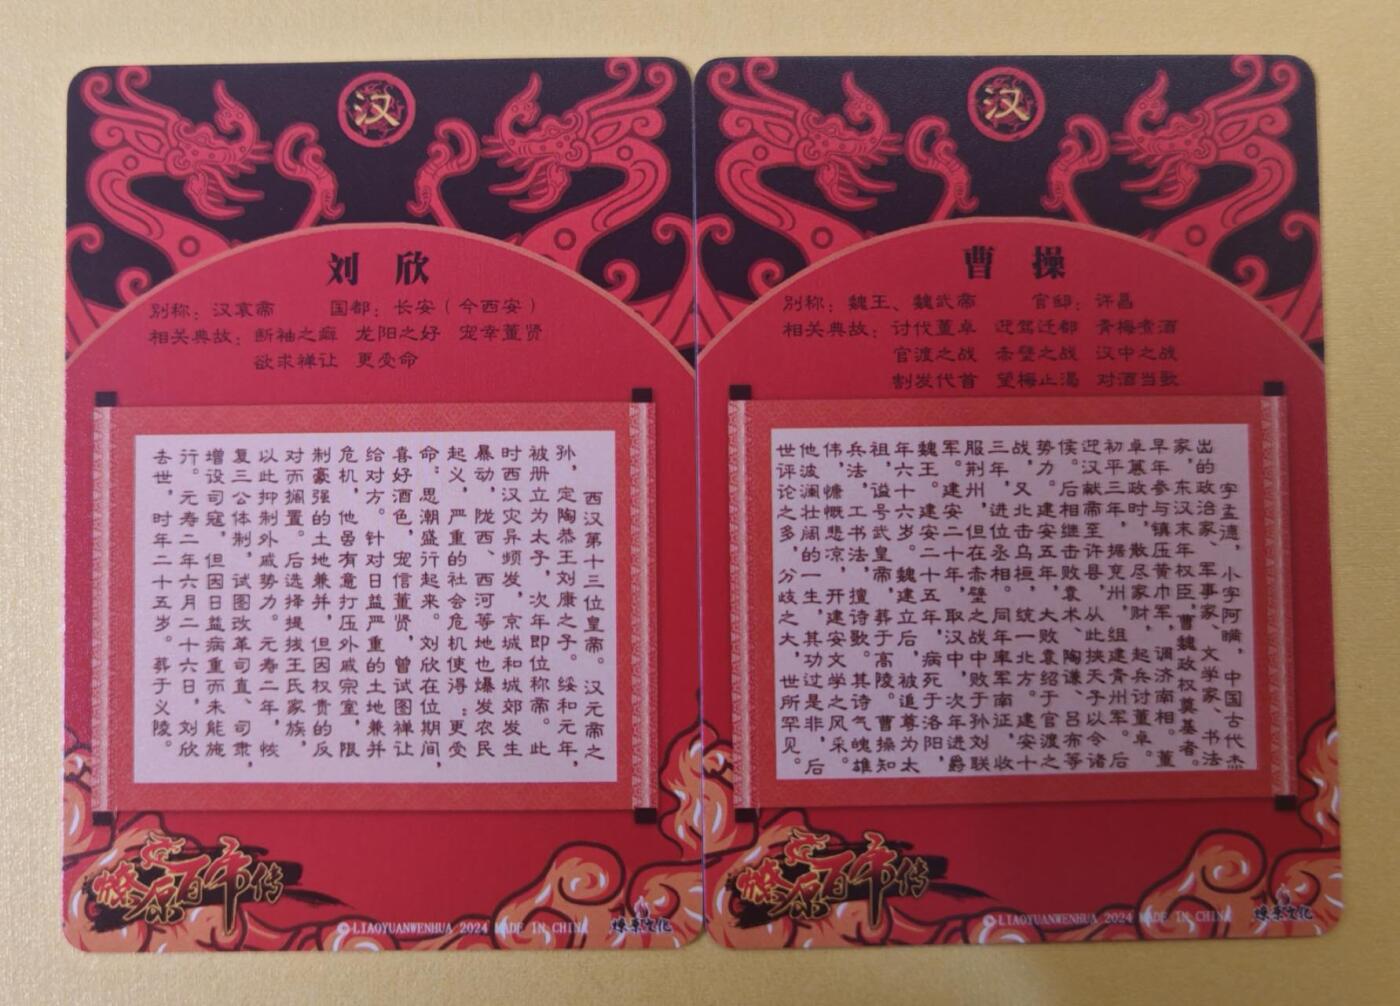 汉
刘欣
别称：汉哀帝 国都：长安（今西安）
相关典故：断袖之癖 龙阳之好 宠幸董贤
欲求禅让 更受命
西汉第十三位皇帝。汉元帝之
孙，定陶恭王刘康之子。绥和元年，
被册立为太子，次年即位称帝。此
时西汉灾异频发，京城和城郊发生
暴动，陇西、西河等地也爆发农民
起义，严重的社会危机使得“更受
命”思潮盛行起来。刘欣在位期间，
喜好酒色，宠信董贤，曾试图禅让
给对方。针对日益严重的土地兼并
危机，他虽有意打压外戚宗室，限
制豪强的土地兼并，但因权贵的反
对而搁置。后选择提拔王氏家族，
以此抑制外戚势力。元寿二年，恢
复三公体制，试图改革司直、司隶，
增设司寇，但因日益病重而未能施
行。元寿二年六月二十六日，刘欣
去世，时年二十五岁。葬于义陵。
燎原百帝传
©LIAOYUANWENHUA 2024 MADE IN CHINA
燎原文化
汉
曹操
别称：魏王、魏武帝 官邸：许昌
相关典故：讨伐董卓 迎驾迁都 青梅煮酒
官渡之战 赤壁之战 汉中之战
割发代首 望梅止渴 对酒当歌
字孟德，小字阿瞒，中国古代杰
出的政治家、军事家、文学家、书法
家，东汉末年权臣，曹魏政权奠基者。
早年参与镇压黄巾军，调济南相。董
卓慕政时，散尽家财，起兵讨董卓。
初平三年，据兖州，组建青州军。后
迎汉献帝至许县，从此挟天子以令诸
侯。后相继击败袁术、陶谦、吕布等
势力。建安五年，大败袁绍于官渡之
战，又北击乌桓，统一北方。建安十
三年，进位丞相。同年率军南证，收
服荆州，但在赤壁之战中败于孙刘联
军。建安二十年，取汉中，次年进爵
魏王。建安二十五年，病死于洛阳，
年六十六岁。魏建立后，被追尊为太
祖，谥号武皇帝，葬于高陵。曹操知
兵法，工书法，擅诗歌。其诗气魄雄
伟，慷慨悲凉，开建安文学之风采。
他波澜壮阔的一生，其功过是非，后
世评论之多，分歧之大，世所罕见。
燎原百帝传
©LIAOYUANWENHUA 2024 MADE IN CHINA
燎原文化